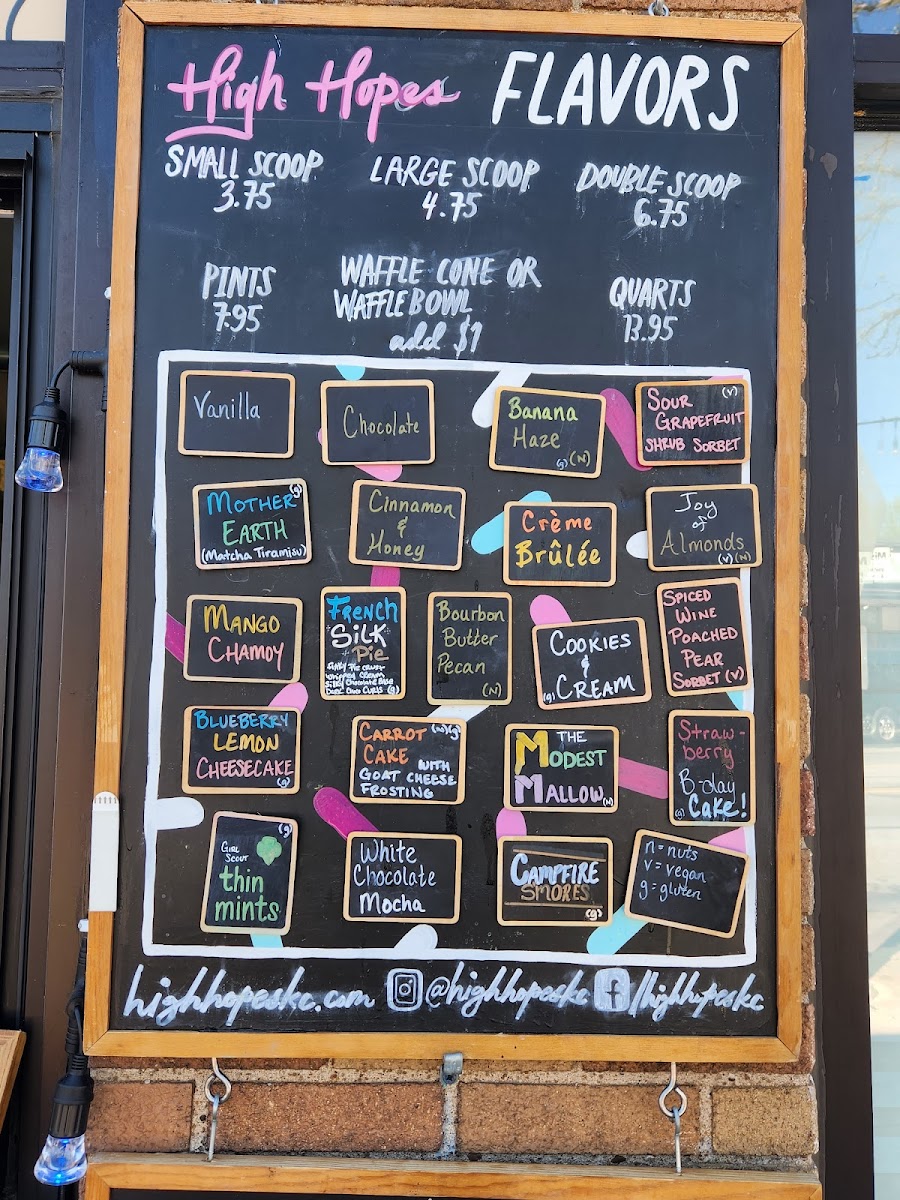 High Hopes FLAVORS
SMALL SCOOP
3.75
LARGE SCOOP
4.75
DOUBLE SCOOP
6.75
PINTS
7.95
WAFFLE CONE OR
WAFFLE BOWL
add $1
QUARTS
13.95
Vanilla
Chocolate
Banana
Haze
(g)(N)
(V)
SOUR
GRAPEFRUIT
SHRUB SORBET
MOTHER (g)
EARTH
(Matcha Tiramisu)
Cinnamon
&
Honey
Crème
Brûlée
Joy
of
Almonds
(V)(N)
MANGO
CHAMOY
FRENCH
SILK
Pie
Whipped Cream
Silky Chocolate Base
Dark Choc Curls (g)
Bourbon
Butter
Pecan
(N)
COOKIES
&
(g) CREAM
SPICED
WINE
POACHED
PEAR
SORBET (V)
BLUEBERRY
LEMON
CHEESECAKE
(g)
CARROT (N)(g)
CAKE WITH
GOAT CHEESE
FROSTING
THE
MODEST
MALLOW (N)
Straw-
berry
B-day
(g) Cake!
(g)
GIRL
SCOUT
thin
mints
White
Chocolate
Mocha
CAMPFIRE
SMORES
(g)
n = nuts
v = vegan
g = gluten
highhopeskc.com @highhopeskc f /highhopeskc